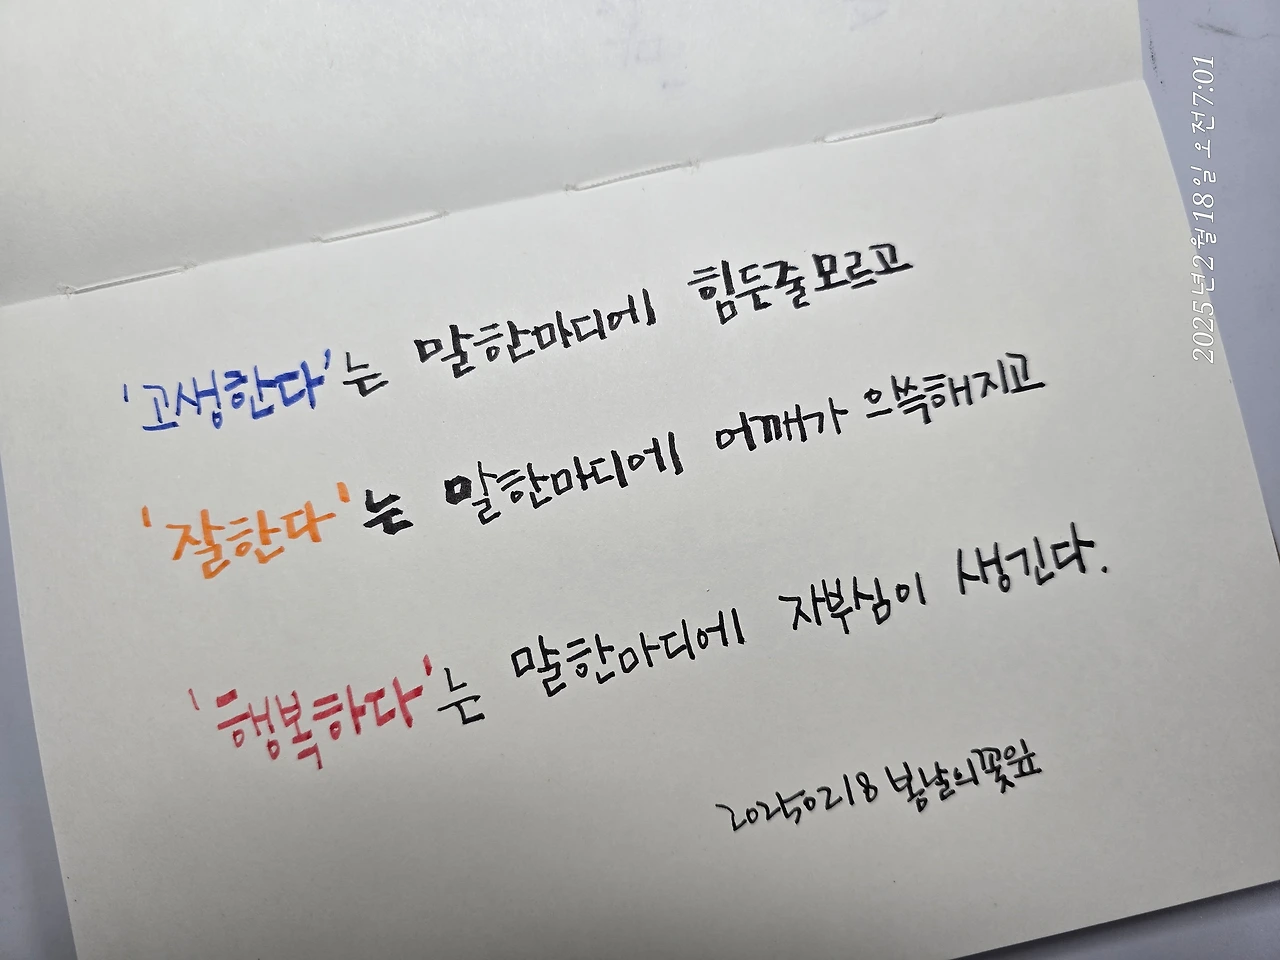 '고생한다'는 말한마디에 힘든줄모르고
'잘한다'는 말한마디에 어깨가 으쓱해지고
'행복하다'는 말한마디에 자부심이 생긴다.
20250218 봄날의꽃잎
2025년 2월 18일 오전 7:01